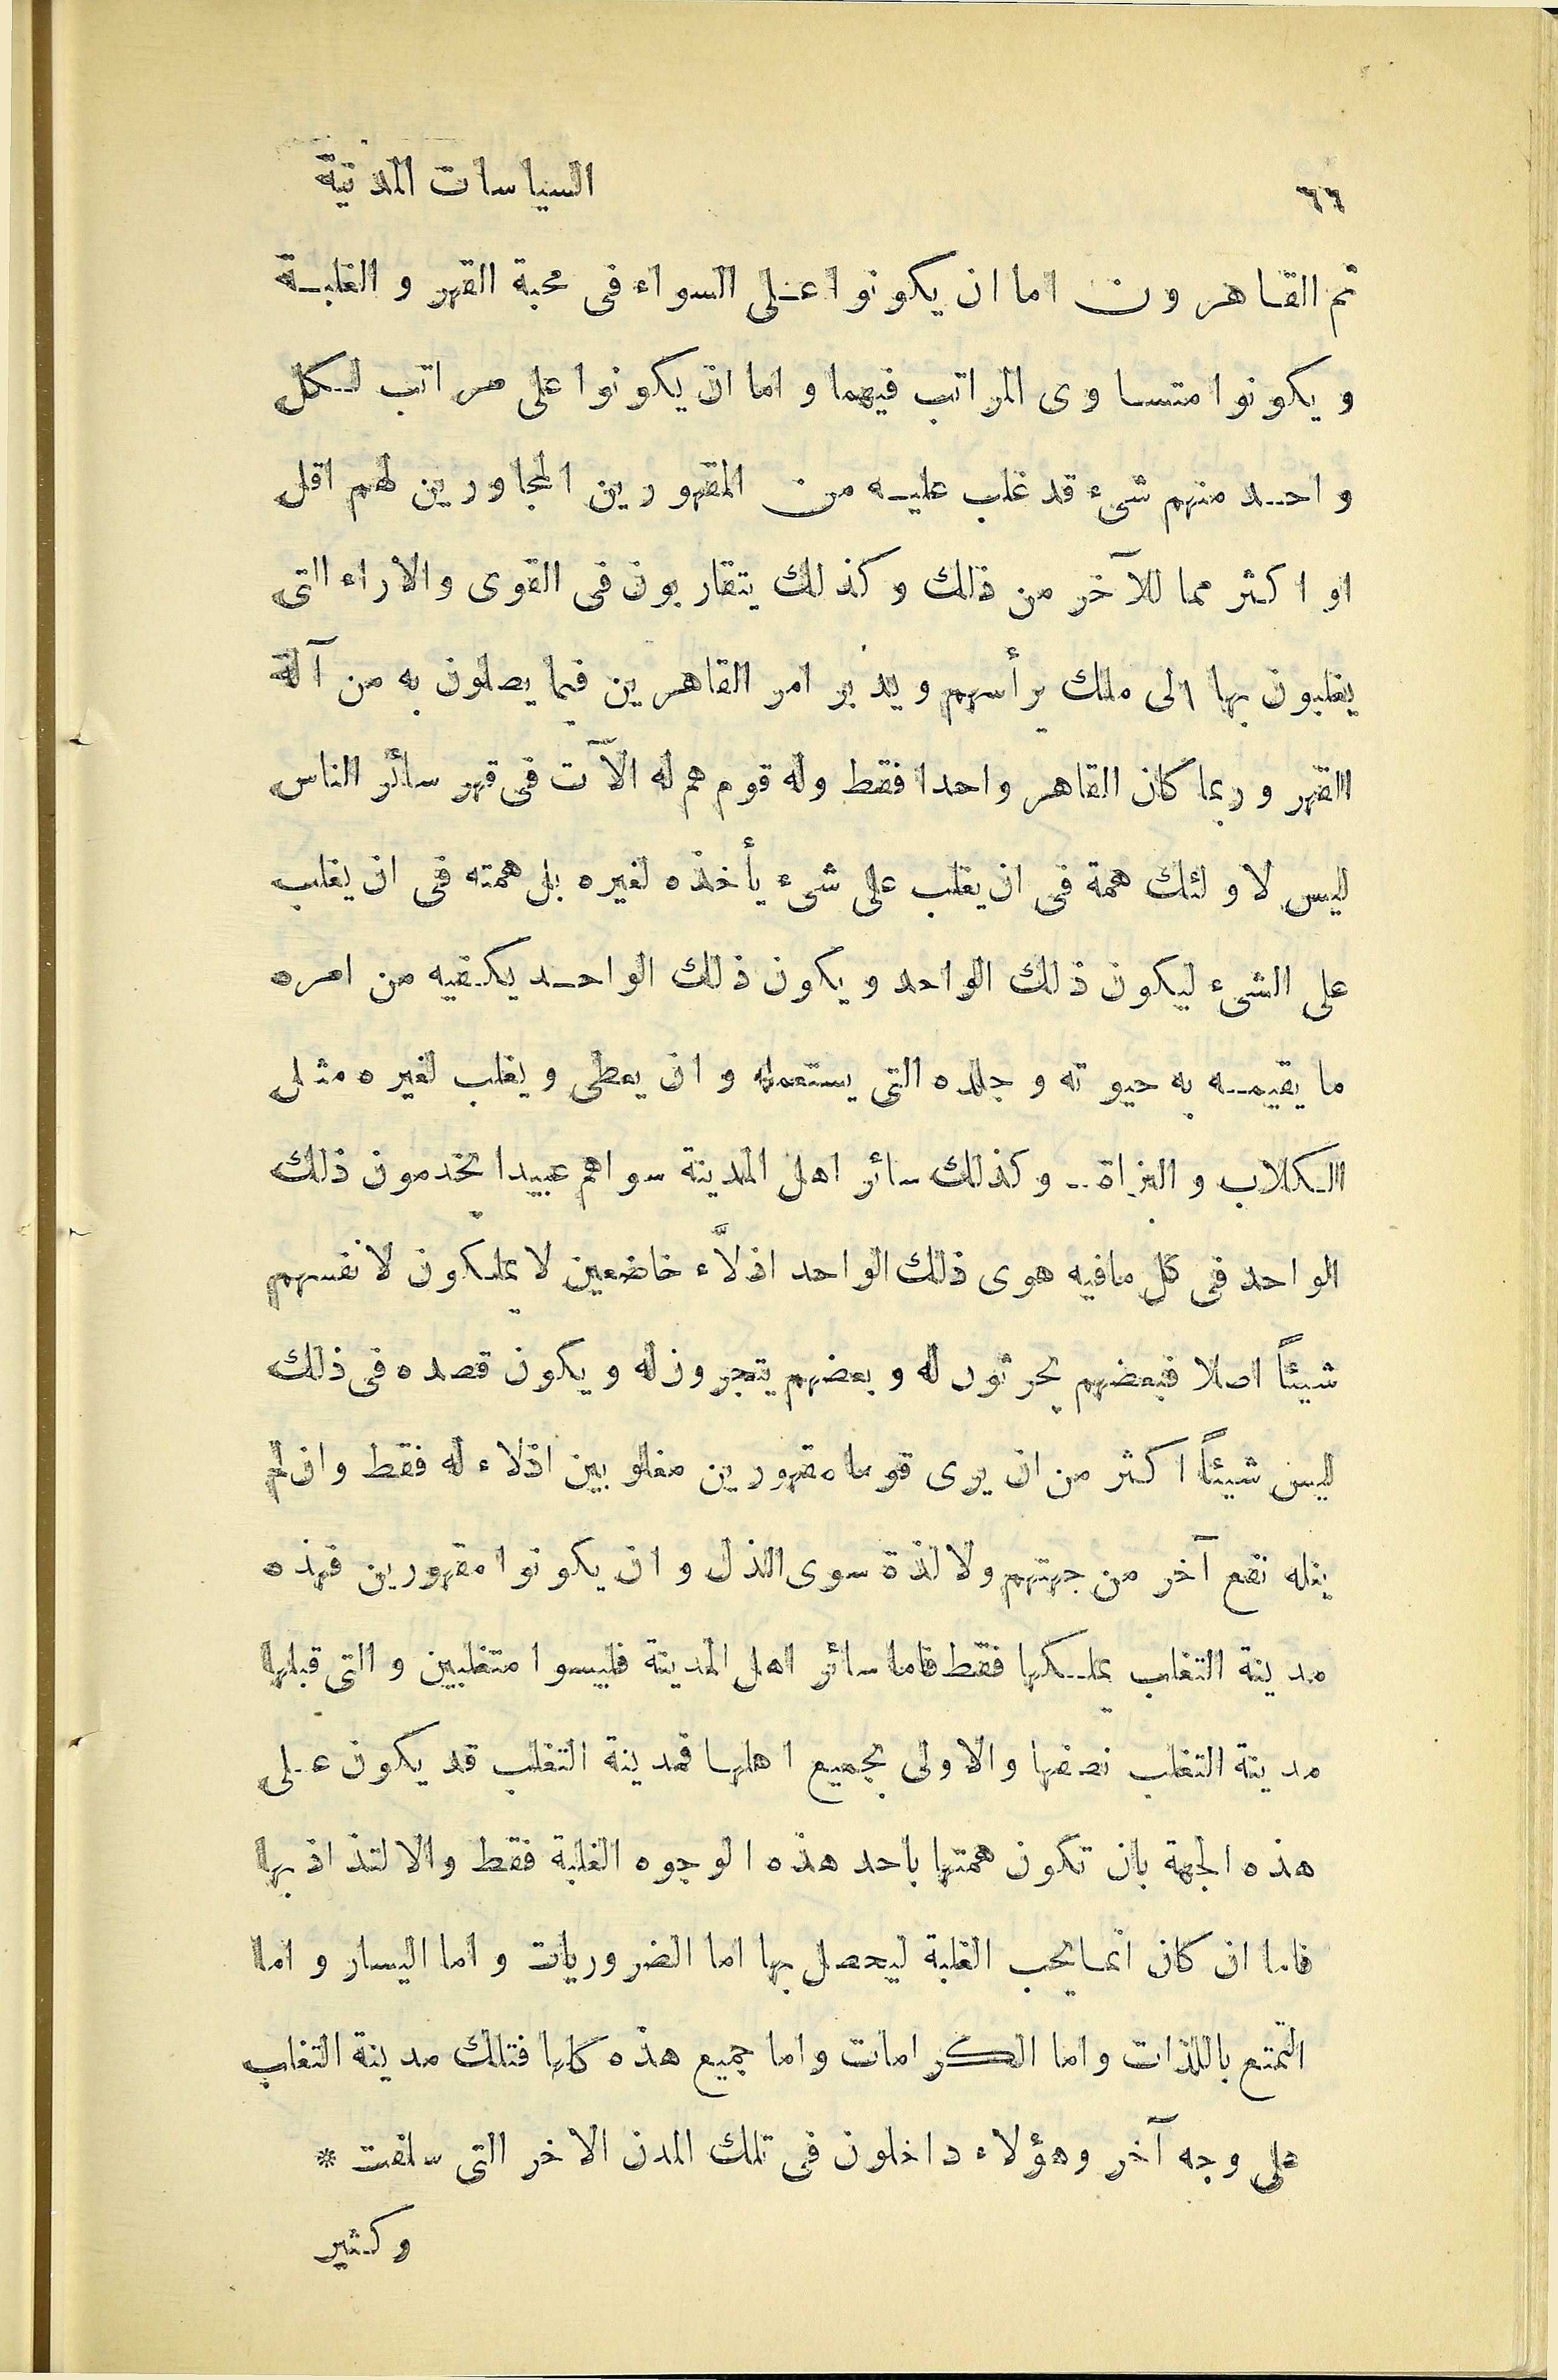 ٦٦ السياسات المدنية
ثم القاهرون اما ان يكونوا على السواء فى محبة القهر و الغلبة
و يكونوا متساوى المراتب فيهما و اما ان يكونوا على مراتب لكل
واحد منهم شىء قد غلب عليه من المقهورين المجاورين لهم اقل
او اكثر مما للآخر من ذلك و كذلك يتقاربون فى القوى والاراء التى
يغلبون بها الى ملك يرأسهم و يدبر امر القاهرين فيما يصلون به من آلة
القهر و ربما كان القاهر واحدا فقط وله قوم هم له الآت فى قهر سائر الناس
ليس لاولئك همة فى ان يغلب على شىء يأخذه لغيره بل همته فى ان يغلب
على الشىء ليكون ذلك الواحد و يكون ذلك الواحد يكفيه من امره
ما يقيمه به حيوته و جلده التى يستعمله و ان يعطى و يغلب لغيره مثل
الكلاب و البزاة .. و كذلك سائر اهل المدينة سواهم عبيدا يخدمون ذلك
الواحد فى كل مافيه هوى ذلك الواحد اذلاَّء خاضعين لا يملكون لانفسهم
شيئاً اصلا فبعضهم يحرثون له و بعضهم يتجرون له و يكون قصده فى ذلك
ليس شيئاً اكثر من ان يرى قوما مقهورين مغلوبين اذلاء له فقط وان لم
ينله نفع آخر من جهتهم ولا لذة سوى الذل و ان يكونوا مقهورين فهذه
مدينة التغلب بملكها فقط فاما سائر اهل المدينة فليسوا متغلبين و التى قبلها
مدينة التغلب نصفها والاولى بجميع اهلها فمدينة التغلب قد يكون على
هذه الجهة بان تكون همتها باحد هذه الوجوه الغلبة فقط والالتذاذ بها
فاما ان كان انما يحب الغلبة ليحصل بها اما الضروريات و اما اليسار و اما
التمتع باللذات و اما الكرامات واما جميع هذه كلها فتلك مدينة التغلب
على وجه آخر وهؤلاء داخلون فى تلك المدن الاخر التى سلفت *
و كثير